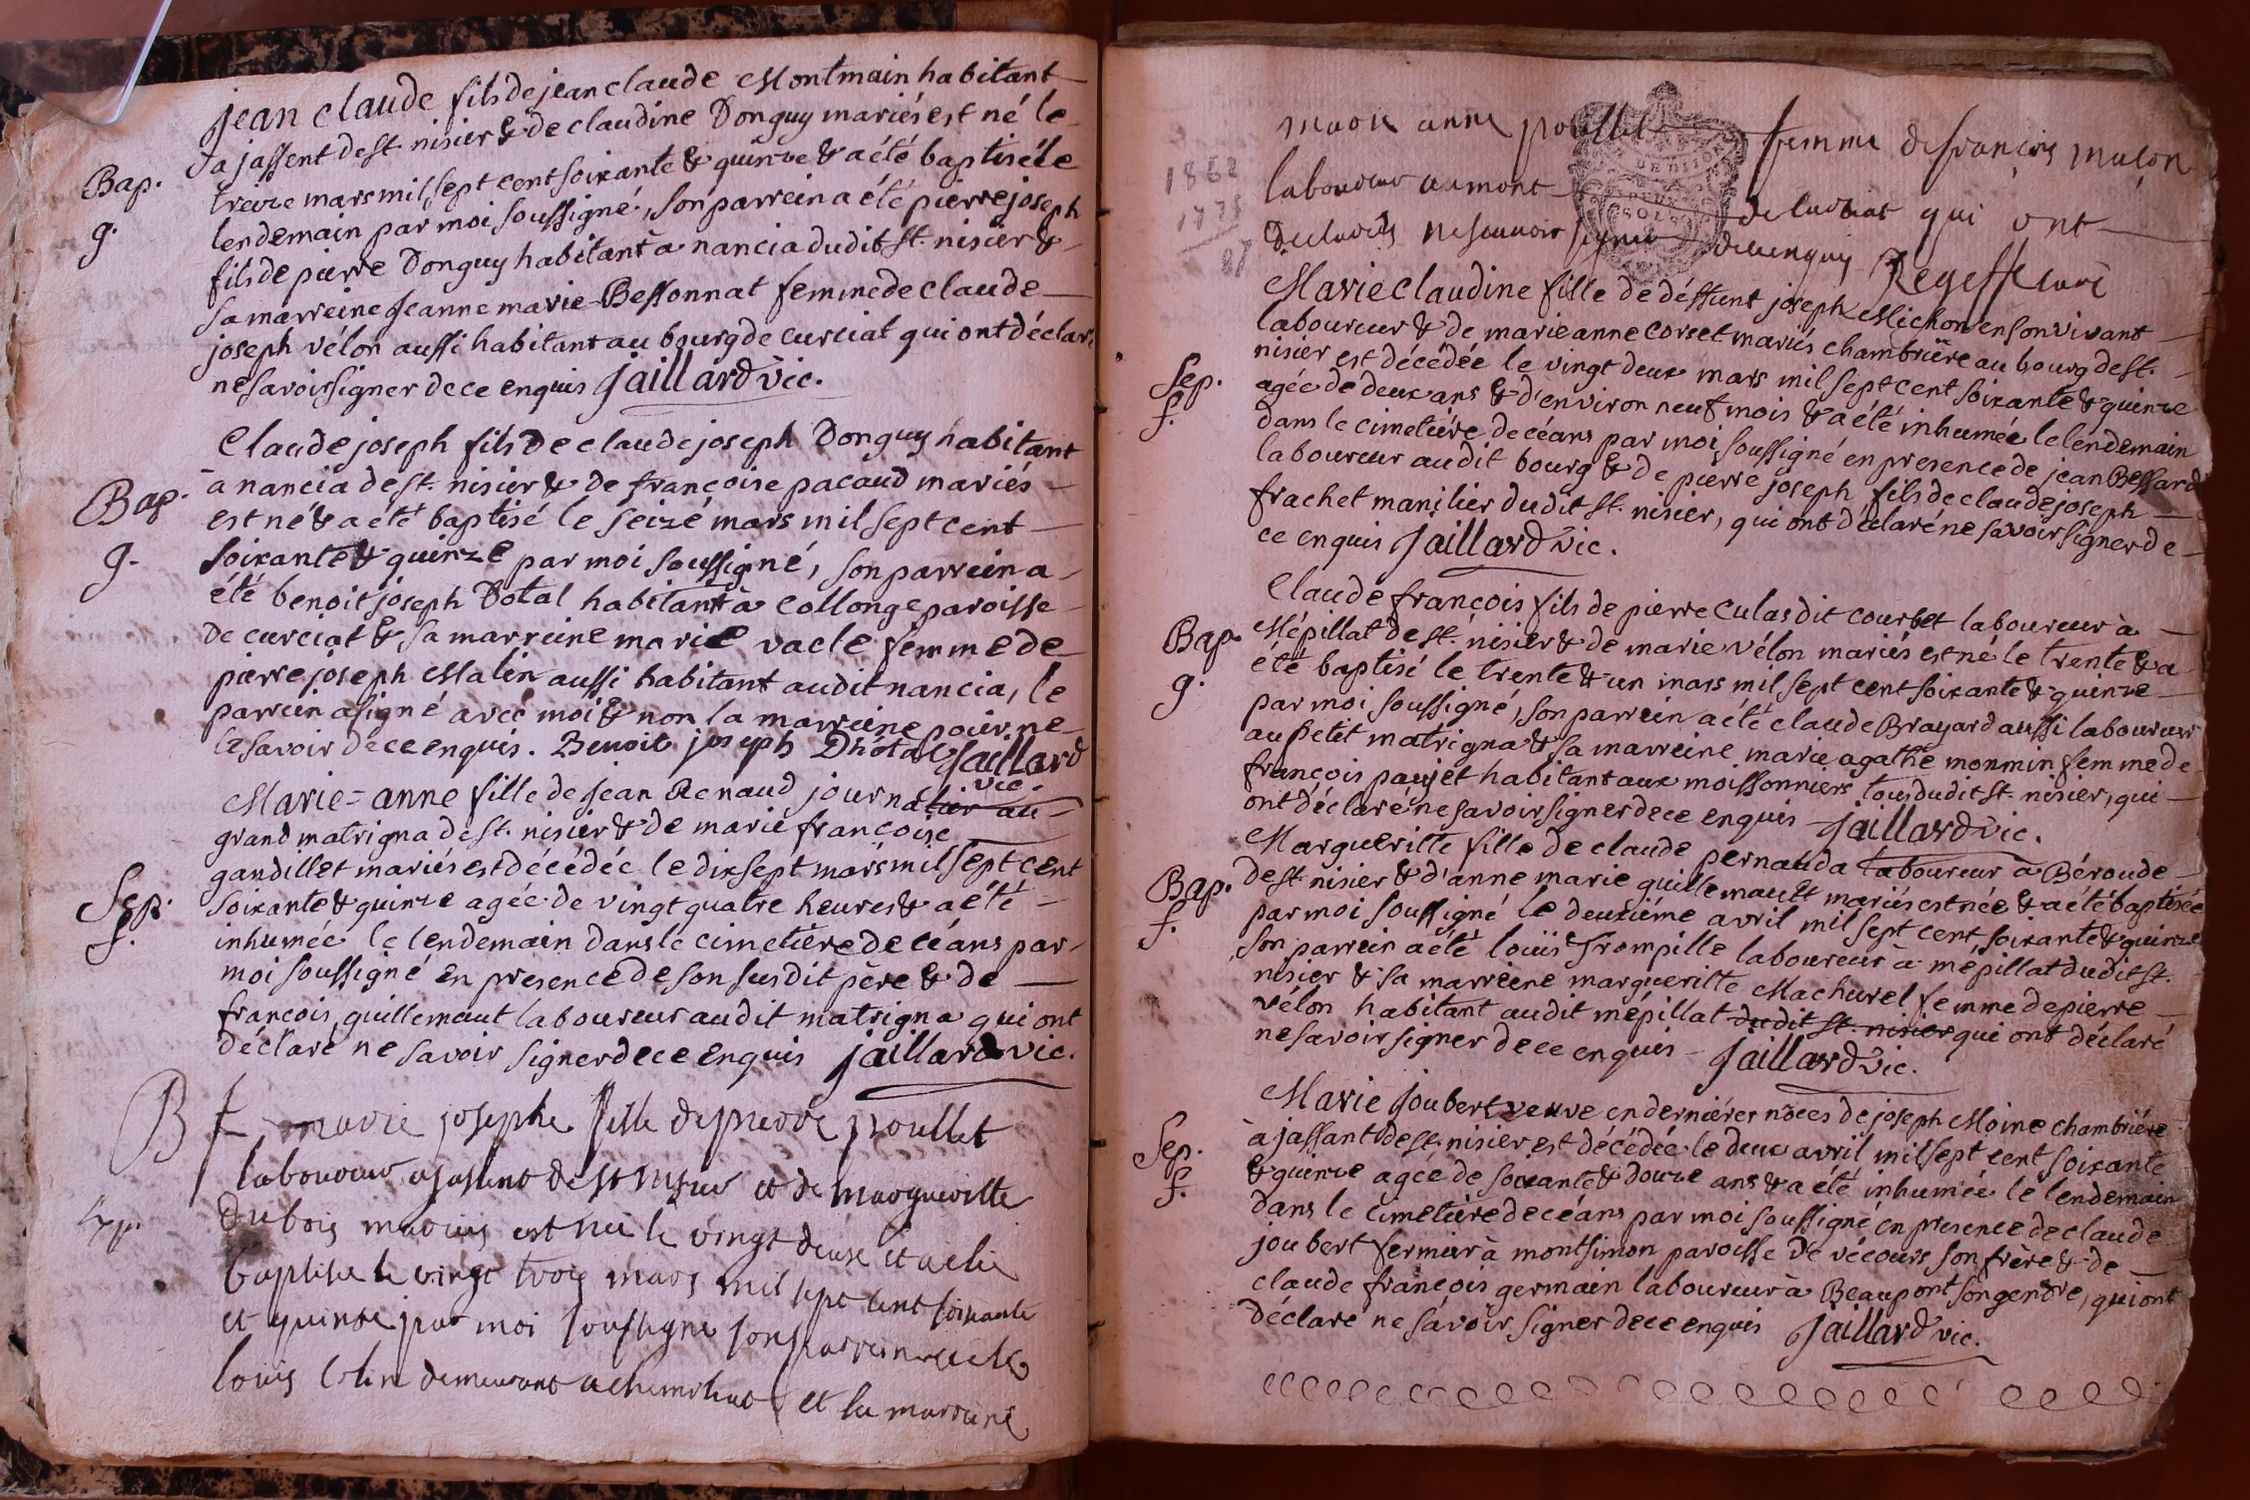 jean claude fils de jean claude Montmain habitant
a jassent de st. nisier & de claudine Donguy mariés est né le
Bap. treize mars mil sept cent soixante & quinze & a été baptisé le
g. lendemain par moi soussigné, son parrein a été pierre joseph
fils de pierre Donguy habitant à nancia dudit st. nisier &
sa marreine Jeanne marie Bessonnat femme de claude
joseph vélon aussi habitant au bourg de curciat qui ont déclaré
ne savoir signer de ce enquis Jaillard vic.
Claude joseph fils de claude joseph Donguy habitant
Bap. à nancia de st. nisier & de françoise pacaud mariés
est né & a été baptisé le seize mars mil sept cent
g. soixante & quinze par moi soussigné, son parrein a
été benoit joseph Dotal habitant à Collonge paroisse
de curciat & sa marreine marie vacle femme de
pierre joseph Malin aussi habitant audit nancia, le
parrein a signé avec moi & non la marreine pour ne
le savoir de ce enquis. Benoit joseph Dhotal Jaillard
vic.
Marie=anne fille de Jean Renaud journalier au
grand matrigna de st. nisier & de marie françoise
gandillet mariés est décédée le dix sept mars mil sept cent
Sep. soixante & quinze agée de vingt quatre heures & a été
f. inhumée le lendemain dans le cimetière de céans par
moi soussigné en presence de son susdit père & de
françois guillemaut laboureur audit matrigna qui ont
déclaré ne savoir signer de ce enquis Jaillard vic.
B f marie josephe fille de pierre poullet
laboureur a jassent de st nisier et de margueritte
Dubois mariés est née le vingt deux et a été
baptisée le vingt trois mars mil sept cent soixante
et quinze par moi soussigné son parrein a été
louis colin demeurant a et la marreine
marie anne poullet femme de françois maçon
1862
laboureur au mont de curciat qui ont
1775
déclarés ne scauoir signer de ce enquis Regeffe curé
87
Marie claudine fille de déffunt joseph Michon en son vivant
laboureur & de marie anne corset mariés chambrière au bourg de st.
nisier est décédée le vingt deux mars mil sept cent soixante & quinze
Sep. agée de deux ans & d'environ neuf mois & a été inhumée le lendemain
f. dans le cimetière de céans par moi soussigné en presence de jean Bessard
laboureur audit bourg & de pierre joseph fils de claude joseph
frachet manilier dudit st. nisier, qui ont déclaré ne savoir signer de
ce enquis Jaillard vic.
Claude françois fils de pierre Culas dit courbet laboureur à
Bap. Mépillat de st. nisier & de marie vélon mariés est né le trente & a
été baptisé le trente & un mars mil sept cent soixante & quinze
g. par moi soussigné, son parrein a été claude Brayard aussi laboureur
au petit matrigna & sa marreine marie agathe monmin femme de
françois paujet habitant aux moissonniers tous dudit st. nisier, qui
ont déclaré ne savoir signer de ce enquis Jaillard vic.
Marguerite fille de claude pernauda laboureur à Béroude
Bap. de st. nisier & d'anne marie guillemault mariés est née & a été baptisée
f. par moi soussigné le deuxiéme avril mil sept cent soixante & quinze
son parrein a été louis Trompille laboureur à mépillat dudit st.
nisier & sa marreine marguerite Machurel femme de pierre
vélon habitant audit mépillat dudit st. nisier qui ont déclaré
ne savoir signer de ce enquis Jaillard vic.
Marie joubert veuve en derniéres noces de joseph Moine chambrière
Sep. à jassant de st. nisier est décédée le deux avril mil sept cent soixante
f. & quinze agée de soixante & douze ans & a été inhumée le lendemain
dans le cimetière de céans par moi soussigné en presence de claude
joubert fermier à montsimon paroisse de vécours son frère & de
claude françois germain laboureur à Beaupont son gendre, qui ont
déclaré ne savoir signer de ce enquis Jaillard vic.